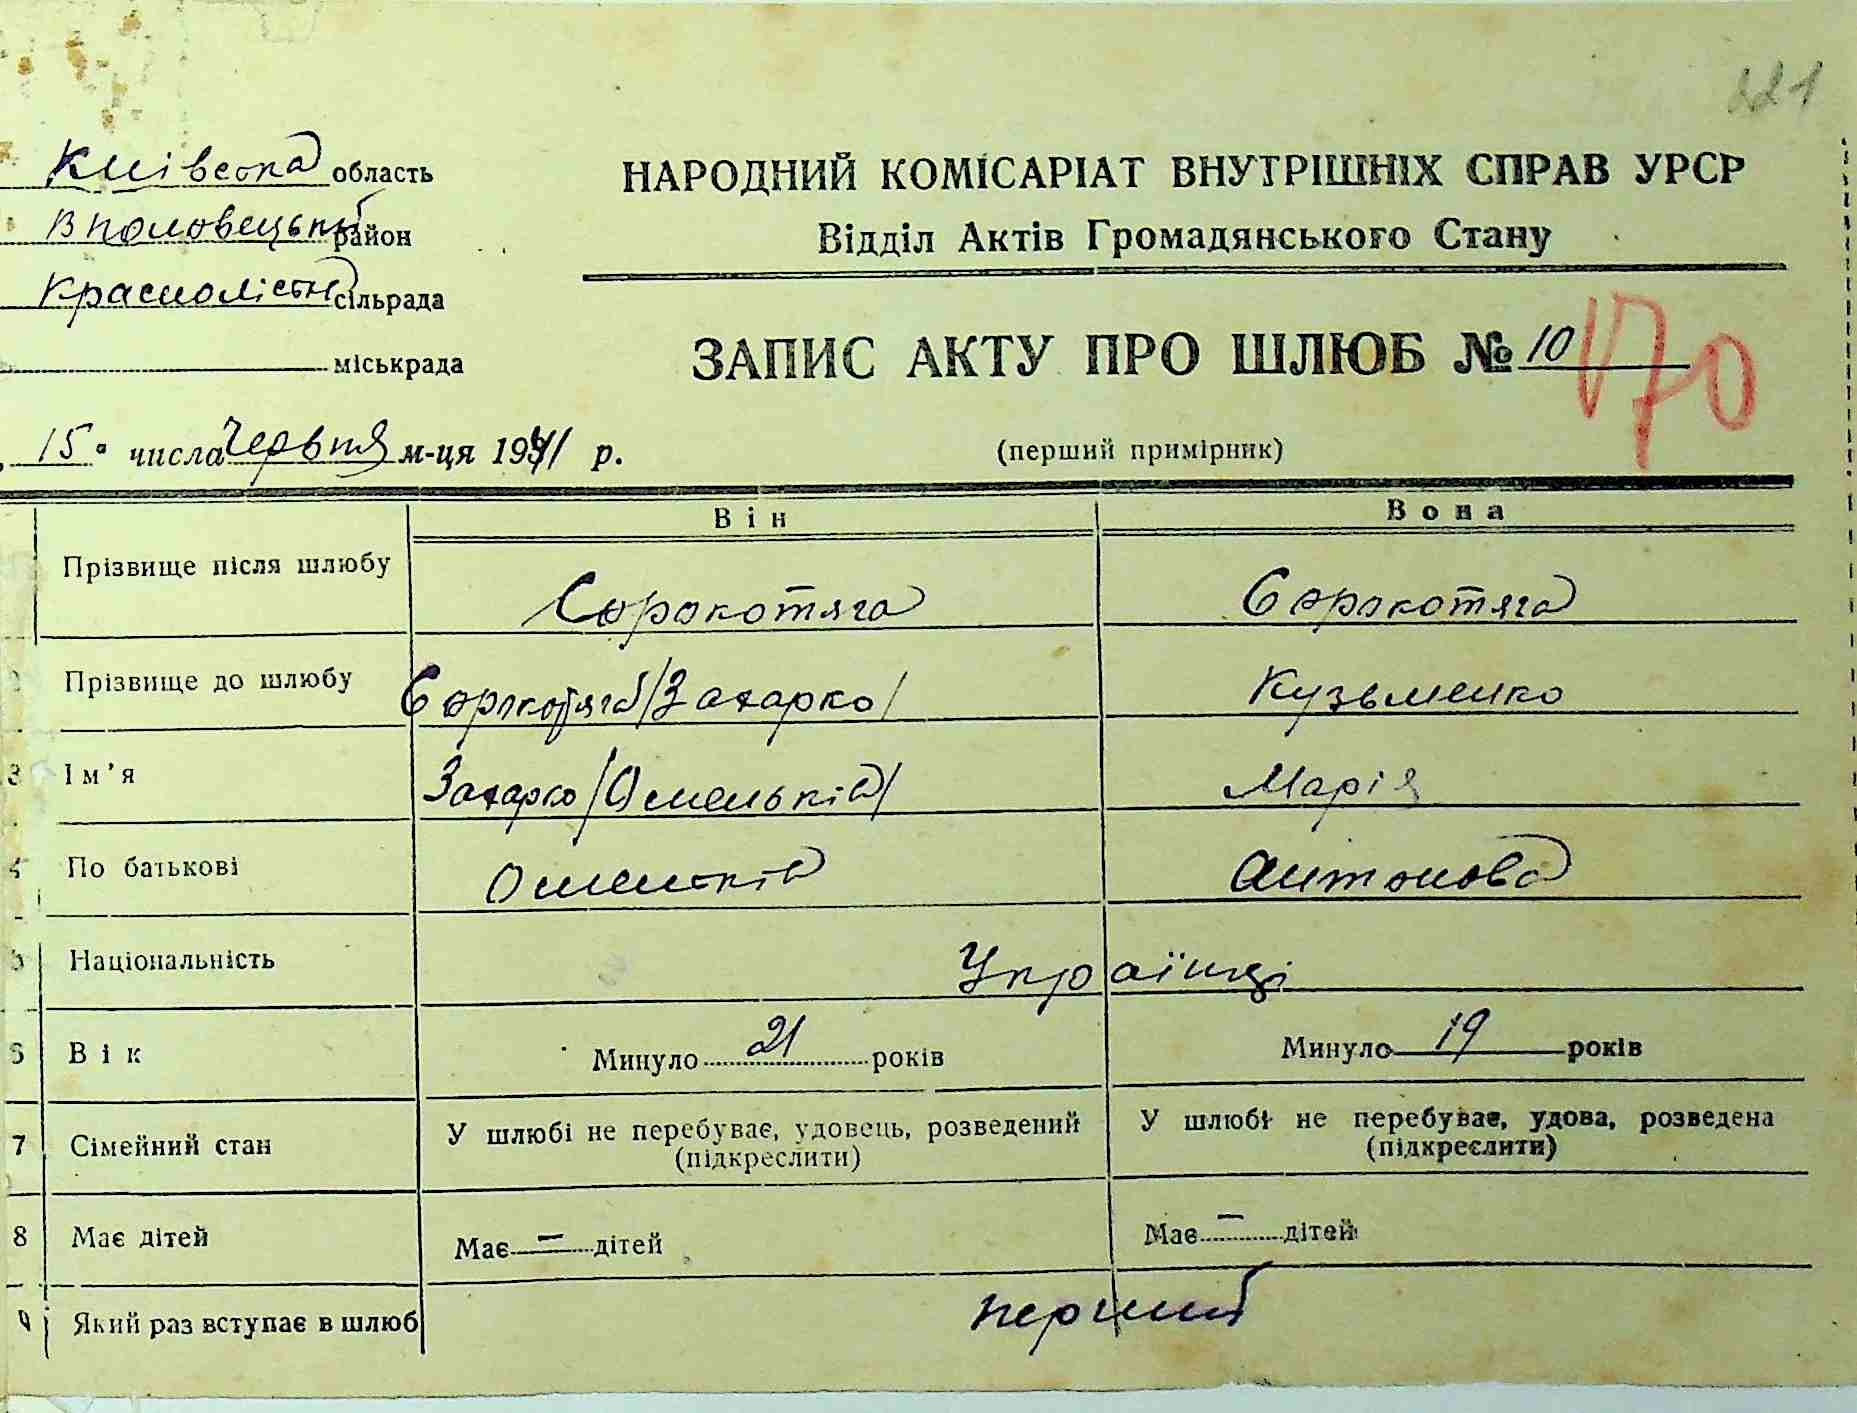 221
Київська область
НАРОДНИЙ КОМІСАРІАТ ВНУТРІШНІХ СПРАВ УРСР
Вполовецький район
Відділ Актів Громадянського Стану
Краснолісти сільрада
ЗАПИС АКТУ ПРО ШЛЮБ № 10
170
міськрада
15 числа Червня м-ця 1941 р.
(перший примірник)
Він Вона
Прізвище після шлюбу Сорокотяга Сорокотяга
Прізвище до шлюбу Сорокотяга /Захарко/ Кузьменко
3 Ім'я Захарко /Омельків/ Марія
4 По батькові Омельків Антонова
5 Національність Українці
6 Вік Минуло 21 років Минуло 19 років
7 Сімейний стан У шлюбі не перебуває, удовець, розведений У шлюбі не перебуває, удова, розведена
(підкреслити) (підкреслити)
8 Має дітей Має — дітей Має — дітей
9 Який раз вступає в шлюб перший